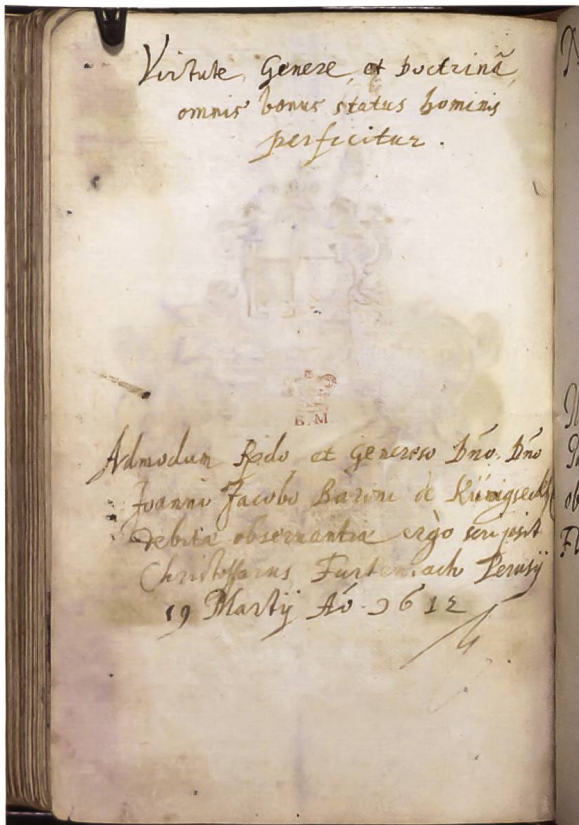 Virtute, Genere, et Doctrinâ,
omnis bonus status hominis
perficitur.
B. M
Admodum Rdo et Generoso Dño. Dño
Joanni Jacobo Baroni de Künigseckh
debita obseruantia ergò scripsit
Christofforus Furtenbach Perusij
19 Martij Aõ. 1612